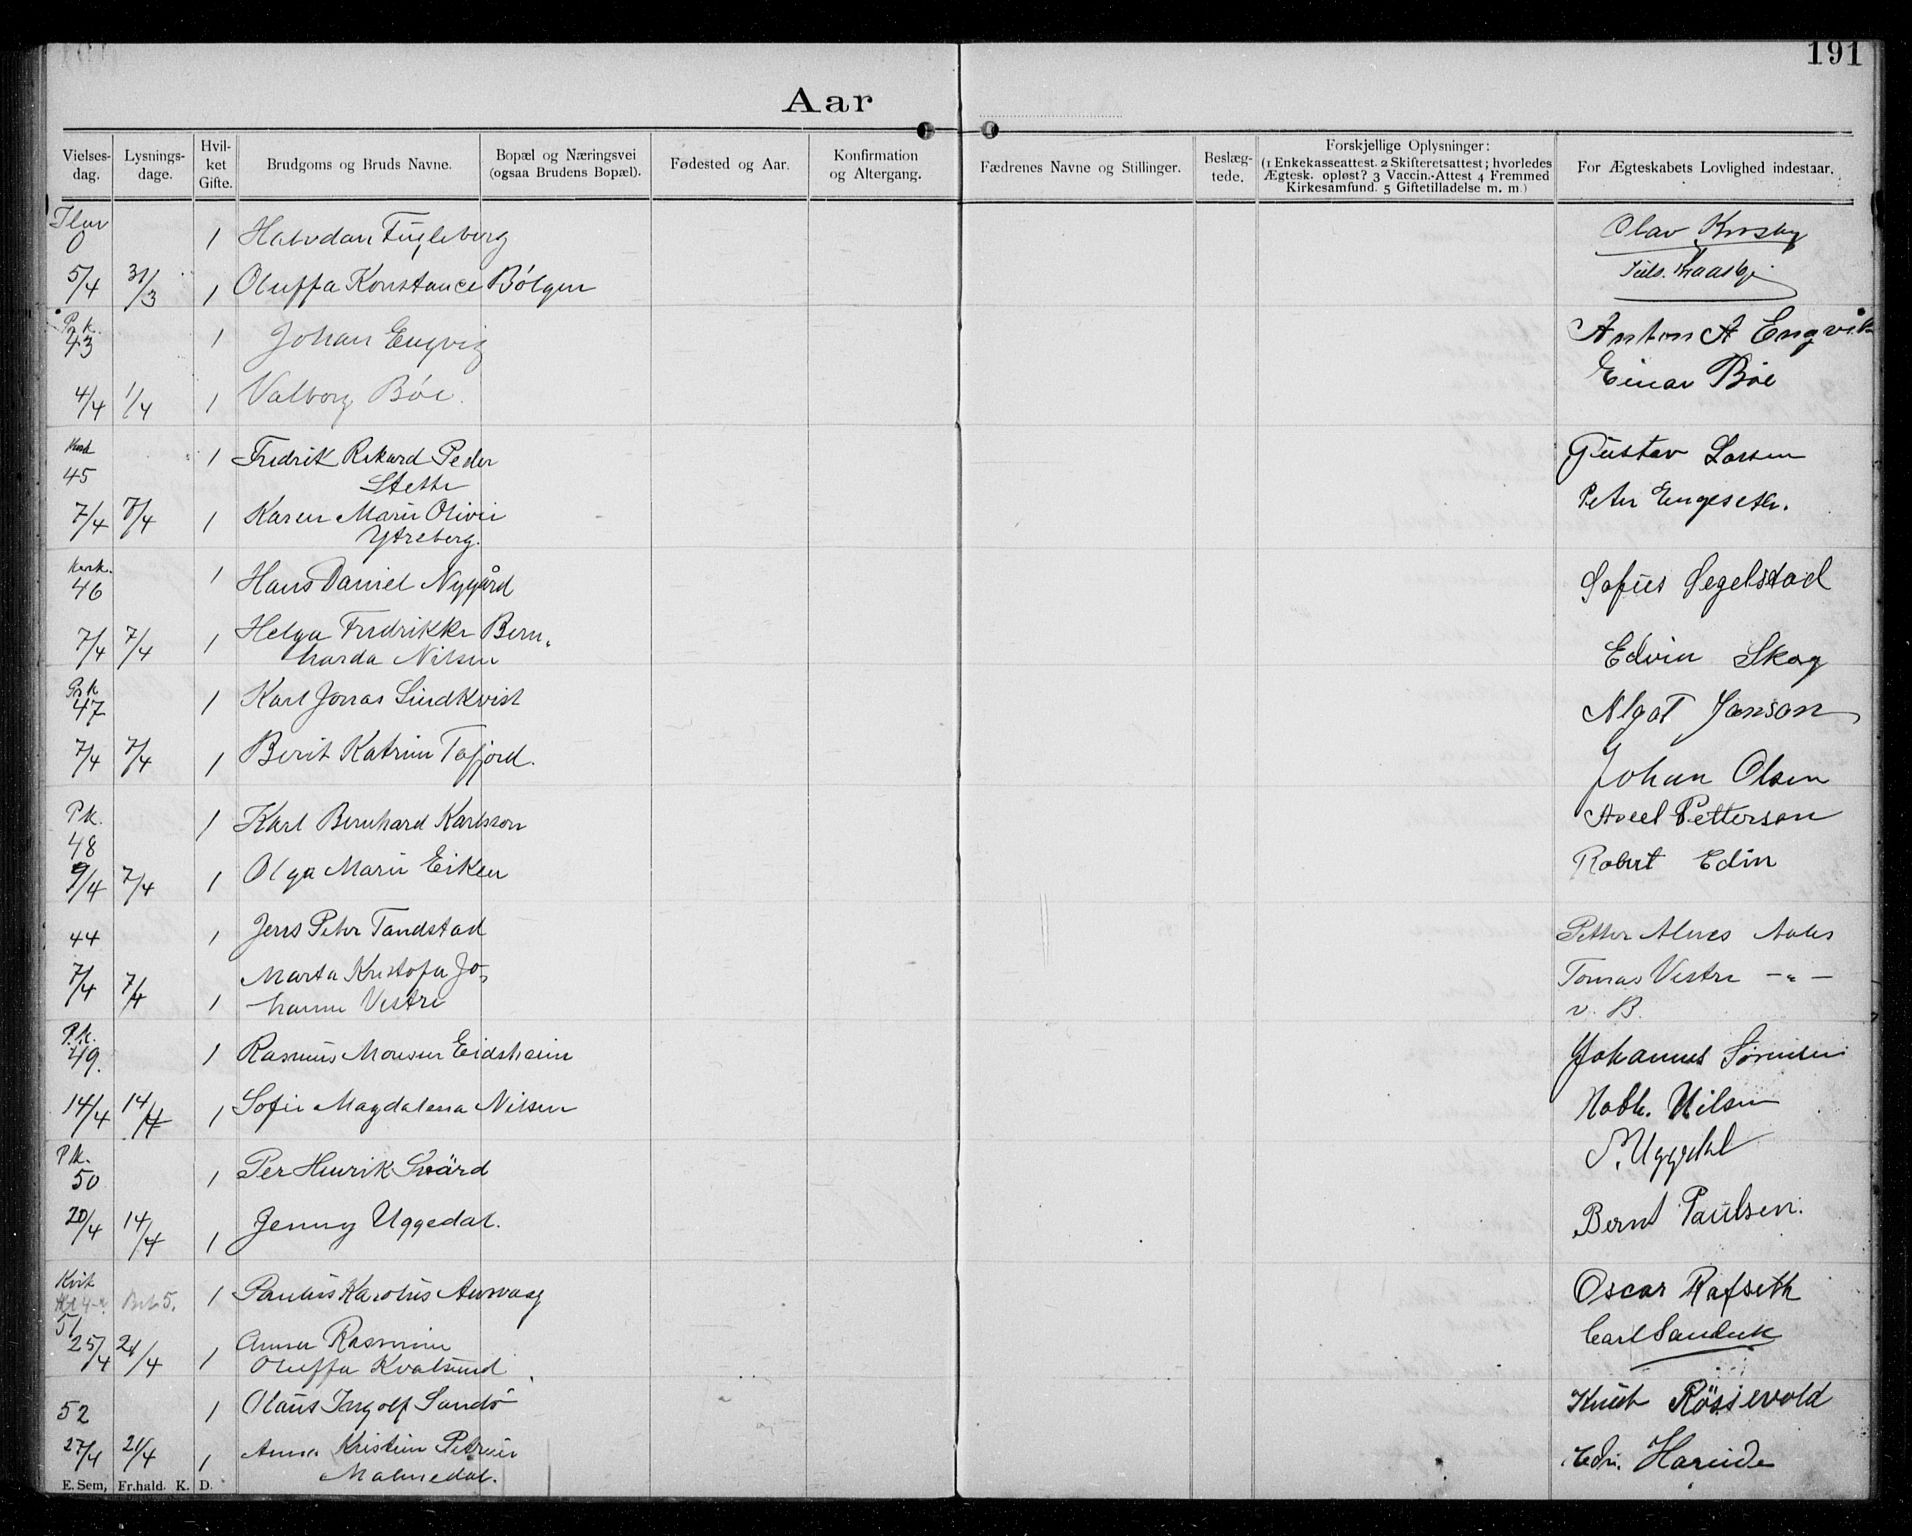 191
Aar
Vielses-
dag.
Lysnings-
dage.
Hvil-
ket
Gifte.
Brudgoms og Bruds Navne.
Bopæl og Næringsvei
(ogsaa Brudens Bopæl).
Fødested og Aar.
Konfirmation
og Altergang.
Fædrenes Navne og Stillinger.
Beslæg-
tede.
Forskjellige Oplysninger:
(1 Enkekasseattest. 2 Skifteretsattest; hvorledes
Ægtesk. opløst? 3 Vaccin.-Attest 4 Fremmed
Kirkesamfund. 5 Giftetilladelse m. m.)
For Ægteskabets Lovlighed indestaar.
1 Halvdan Fugleberg Olav
5/4 31/3 1 Oluffa Konstance Bölgen
P. k.
43 1 Johan Engvig Anton A Engvik
4/4 1/4 1 Valborg Böe. Einar Böe
45 1 Fredrik Rikard Peder Gustav Larsen
Stette
7/4 7/4 1 Karen Marie Olivie Peter Engeseth.
Ytreberg.
46 1 Hans Daniel Nygård Sofus Segelstad
7/4 7/4 1 Helga Fredrikke Bern-
harda Nilsen Edvin Skog
47 1 Karl Jonas Lindkvist Algot Janson
7/4 7/4 1 Berit Katrine Tafjord. Johan Olsen
P. k.
48 1 Karl Bernhard Karlsson Axel Petterson
9/4 7/4 1 Olga Marie Eiken Robert Edin
44 1 Jens Peter Tandstad Petter Alnes Aales
7/4 7/4 1 Marta Kristofa Jo- Tomas Vestre -"-
hanne Vestre v. B.
P. k.
49. 1 Rasmus Monsen Eidsheim Johannes Sörensen
14/4 14/4 1 Sofie Magdalena Nilsen Nilsen
P. k.
50 1 Per Henrik Svärd Uggedal
20/4 14/4 1 Jenny Uggedal. Bernt Paulsen.
51 1 Paulus Karolus Ausvaag Oscar Rafseth
25/4 21/4 1 Anna Rasmine Carl Sandvik
Oluffa Kvalsund
52 1 Olaus Ingolf Sandö Knut Rössevold
27/4 21/4 1 Anna Kristine Petrine Edv. Hareide
Malmedal.
E. Sem, Fr.hald. K. D.